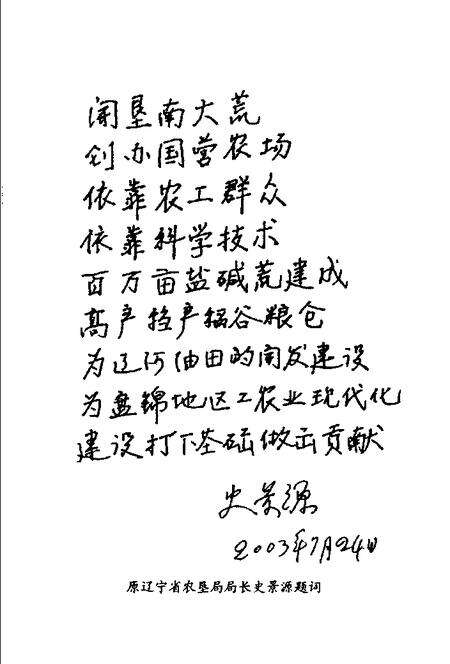 开垦南大荒
创办国营农场
依靠农工群众
依靠科学技术
百万亩盐碱荒建成
高产稳产稻谷粮仓
为辽河油田的开发建设
为盘锦地区工农业现代化
建设打下基础做出贡献
史景源
2003年7月24日
原辽宁省农垦局局长史景源题词